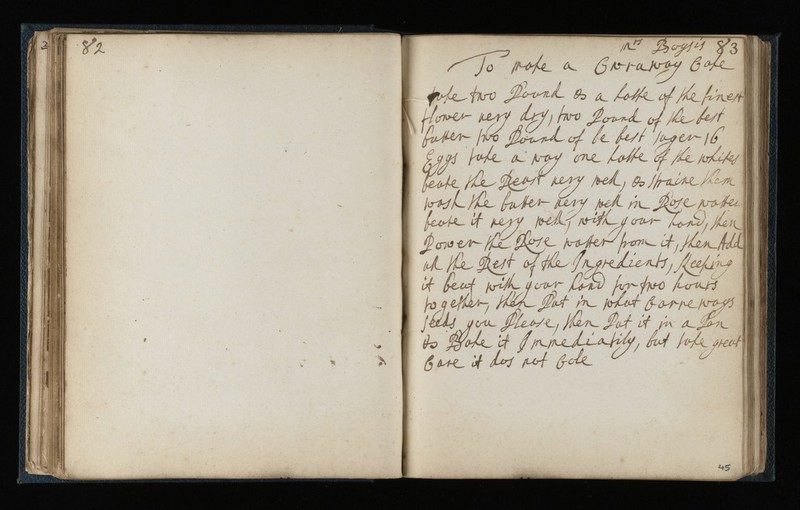 82
mrs Boysis 83
To make a Carraway Cake
take two Pound & a halfe of the finest
flower very dry, two Pound of the best
butter two Pound of be best suger 16
Eggs take a way one halfe of the whites
beate the Reast very well, & straine them
wash the butter very well in Rose watter
beate it very well, with your hand, then
Power the Rose watter from it, then Add
all the Rest of the Ingredients, Keeping
it beat with your hand for two hours
together, then Put in what Carreways
seeds you Please, then Put it in a Pan
& Bake it Immediatily, but take great
Care it dos not Cole
45